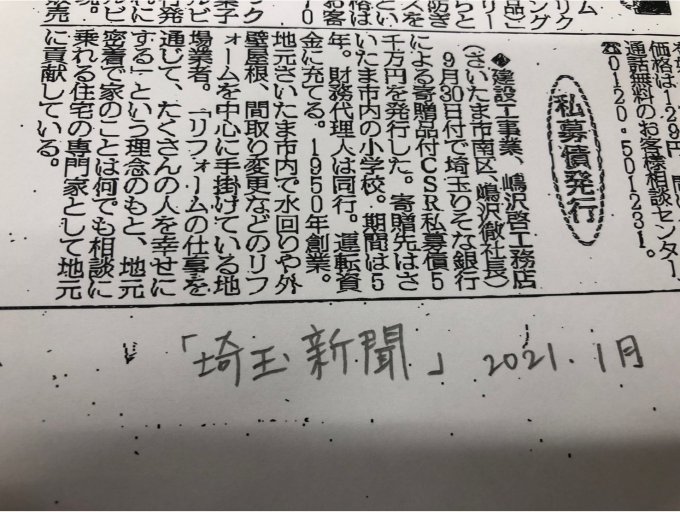 価格は129円。同
通話無料のお客様相談センター、
☎0120・501231。
私募債発行
◆建設工事業、嶋沢啓工務店
(さいたま市南区、嶋沢徹社長)
9月30日付で埼玉りそな銀行
による寄贈品付CSR私募債5
千万円を発行した。寄贈先はさ
いたま市内の小学校。期間は5
年。財務代理人は同行。運転資
金に充てる。1950年創業。
地元さいたま市内で水回りや外
壁屋根、間取り変更などのリフ
ォームを中心に手掛けている地
場業者。「リフォームの仕事を
通じて、たくさんの人を幸せに
する」という理念のもと、地元
密着で家のことは何でも相談に
乗れる住宅の専門家として地元
に貢献している。
「埼玉新聞」 2021.1月